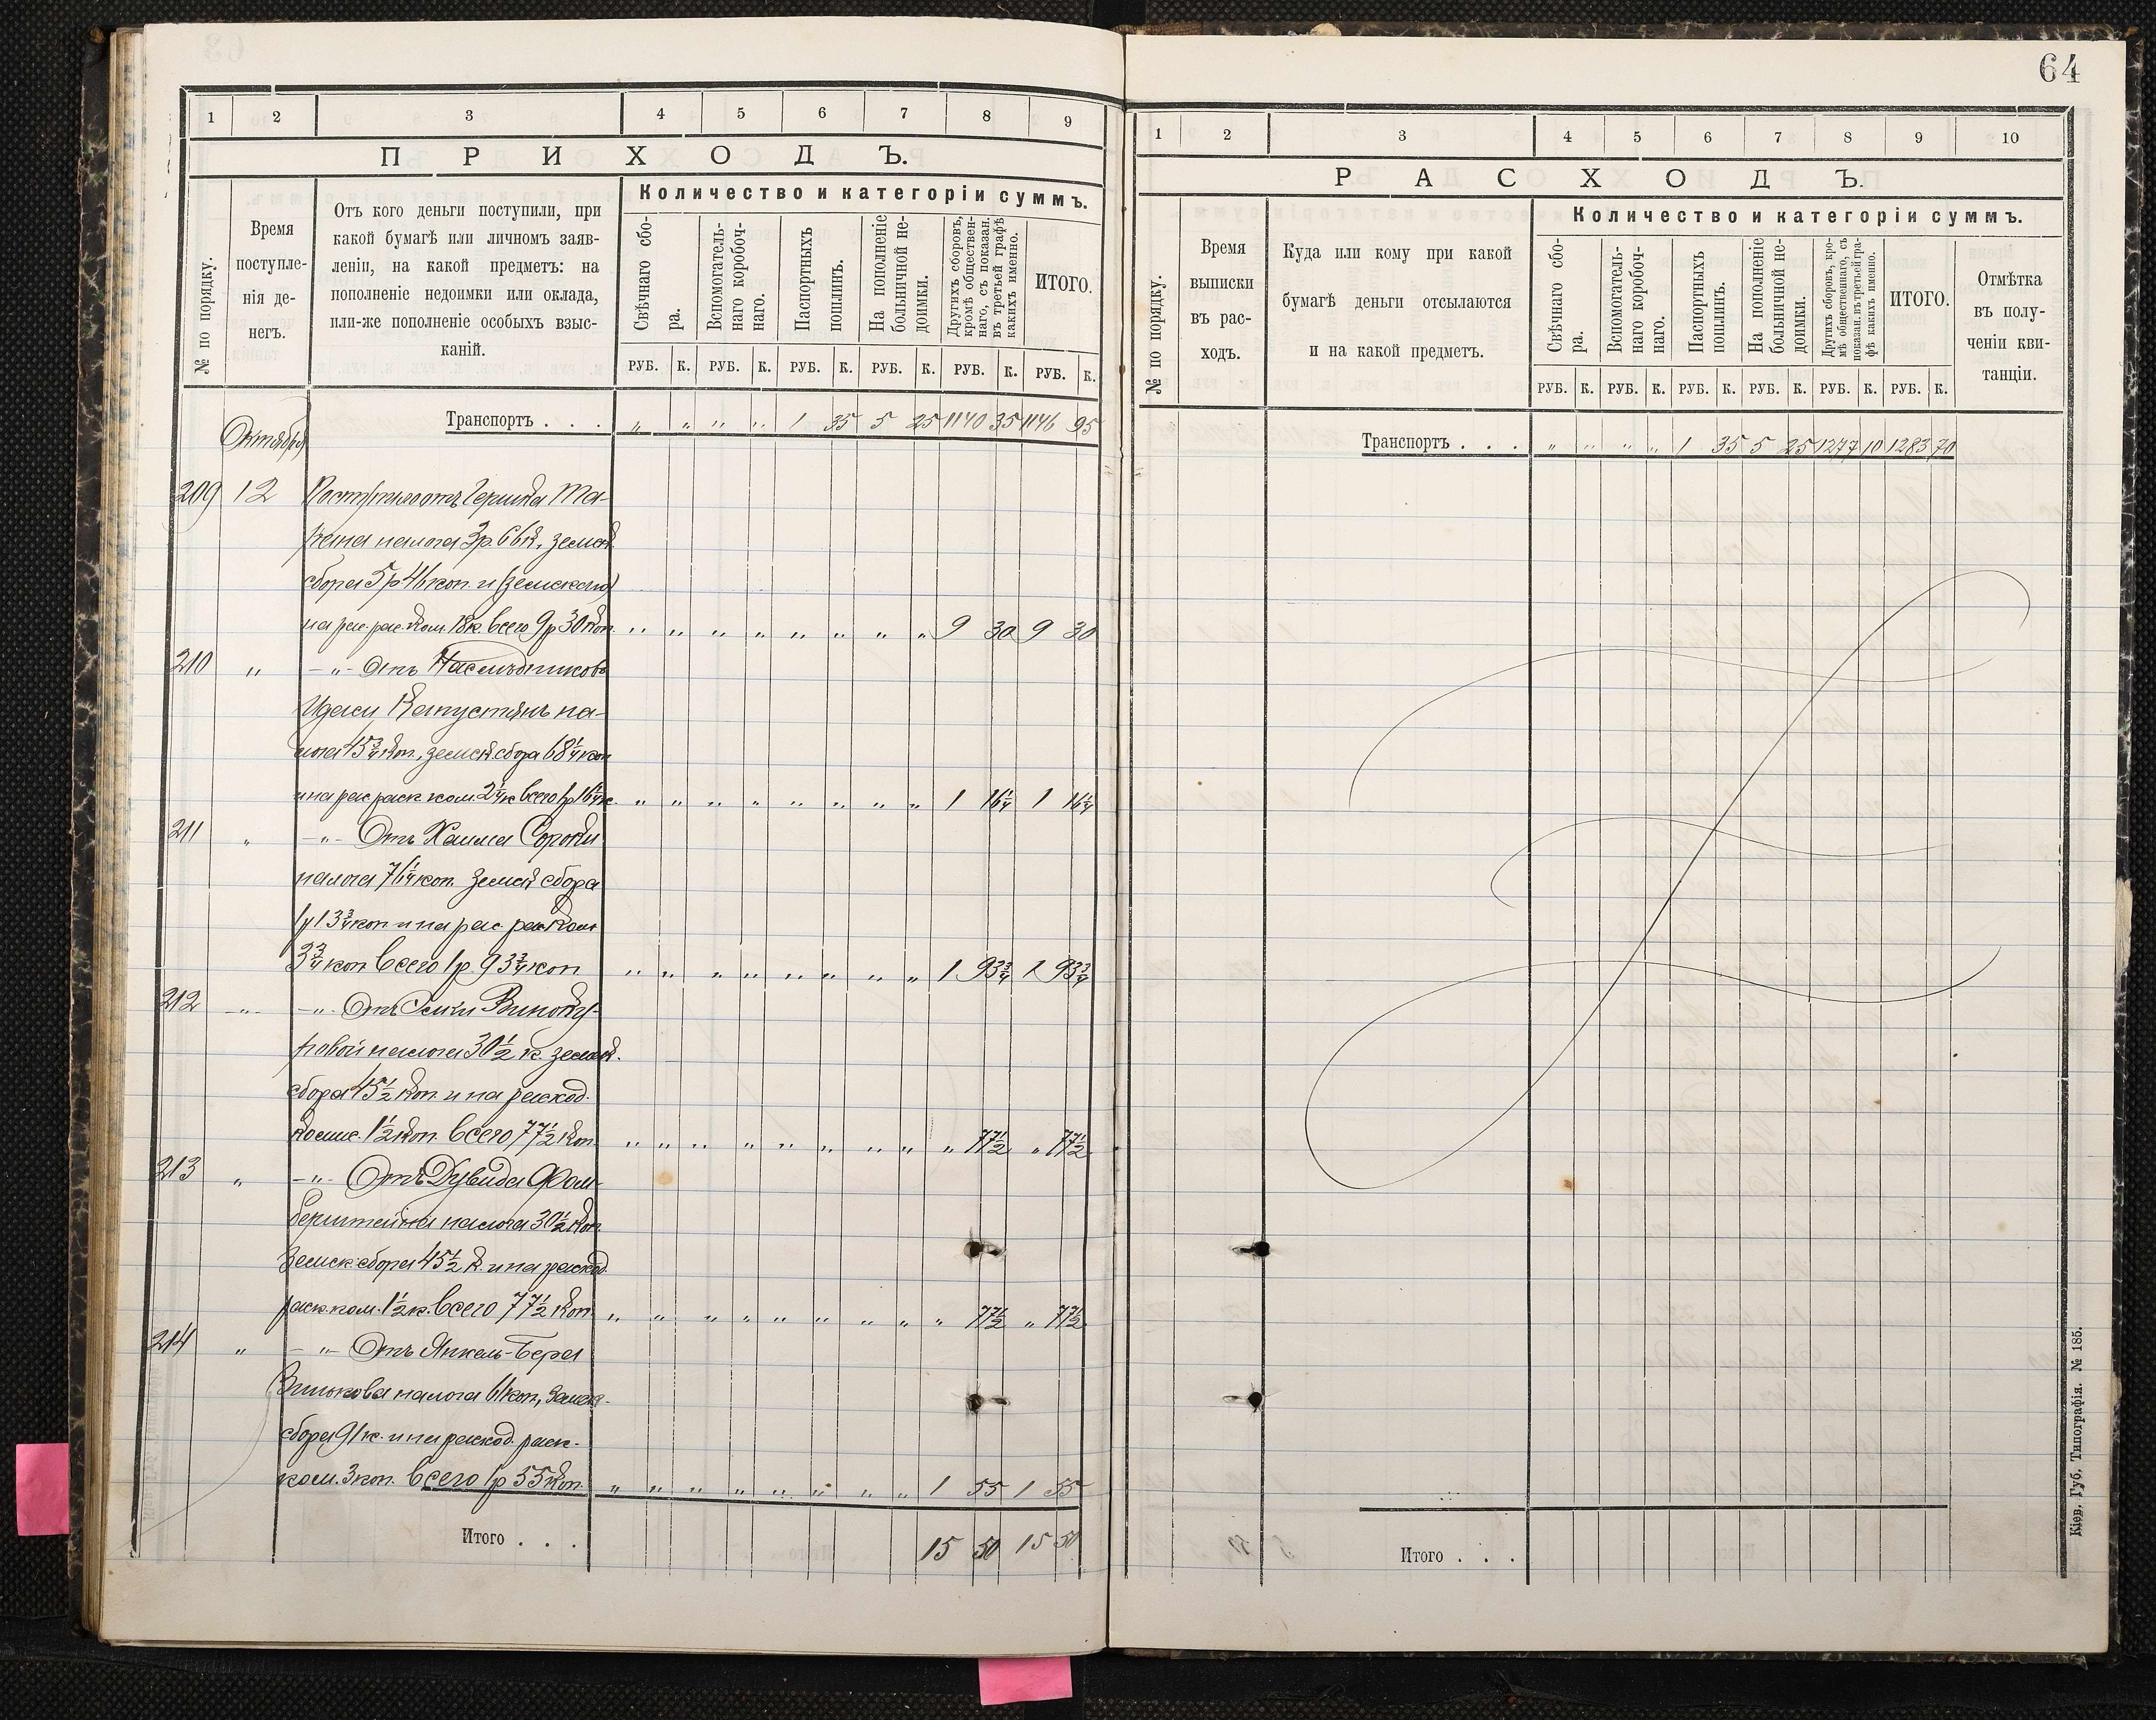 1 2 3 4 5 6 7 8 9
ПРИХОДЪ.
№ по порядку.
Время
поступле-
нія де-
негъ.
Отъ кого деньги поступили, при
какой бумагѣ или личномъ заяв-
леніи, на какой предметъ: на
пополненіе недоимки или оклада,
или-же пополненіе особыхъ взыс-
каній.
Количество и категоріи суммъ.
Свѣчнаго сбо-
ра.
Вспомогатель-
наго коробоч-
наго.
Паспортныхъ
пошлинъ.
На пополненіе
больничной не-
доимки.
Другихъ сборовъ,
кромѣ обществен-
наго, съ показан.
въ третьей графѣ
какихъ именно.
ИТОГО.
РУБ. К. РУБ. К. РУБ. К. РУБ. К. РУБ. К. РУБ. К.
Транспортъ . . . „ „ „ „ 1 35 5 25 1140 35 1146 95
Октября
209 12 Поступило отъ Гершка Ма-
налога 3р. 66к. земск.
сбора 5р 46 коп. и (земскаго)
на рас. рас. ком. 18к. всего 9р 30 коп. „ „ „ „ „ „ „ „ 9 30 9 30
210 „ –„– Отъ Наслѣдниковъ
Капустянъ на-
лога 45¾ коп., земск. сбора 68¼ коп
и на рас раск ком. 2¼ к всего 1р 16¼ к. „ „ „ „ „ „ „ „ 1 16¼ 1 16¼
211 „ –„– Отъ Хаима Сороки
налога 76¼ коп. Земск сбора
1р 13¾ коп и на рас. раск ком
3¾ коп всего 1р. 93¾ коп „ „ „ „ „ „ „ „ 1 93¾ 1 93¾
212 –„– –„– Отъ Винокур-
ровой налога 30½ к. земск.
сбора 45½ коп. и на расход.
комис. 1½ коп. всего 77½ коп. „ „ „ „ „ „ „ „ „ 77½ „ 77½
213 „ –„– Отъ Дувида Фал-
берштейна налога 30½ коп
Земск сбора 45½ к. и на расход.
раск. ком. 1½ к. всего 77½ коп. „ „ „ „ „ „ „ „ „ 77½ „ 77½
214 „ –„– Отъ Янкель-Бера
налога 61 коп., Земск.
сбора 91 к. и на расход. раск.
ком. 3 коп. всего 1р 55 коп. „ „ „ „ „ „ „ „ 1 55 1 55
Итого . . . 15 50 15 50
64
1 2 3 4 5 6 7 8 9 10
РАСХОДЪ.
№ по порядку.
Время
выписки
въ рас-
ходъ.
Куда или кому при какой
бумагѣ деньги отсылаются
и на какой предметъ.
Количество и категоріи суммъ.
Свѣчнаго сбо-
ра.
Вспомогатель-
наго коробоч-
наго.
Паспортныхъ
пошлинъ.
На пополненіе
больничной не-
доимки.
Другихъ сборовъ, кро-
мѣ общественнаго, съ
показан. въ третьей гра-
фѣ какихъ именно.
ИТОГО.
Отмѣтка
въ полу-
ченіи кви-
танціи.
РУБ. К. РУБ. К. РУБ. К. РУБ. К. РУБ. К. РУБ. К.
Транспортъ . . . „ „ „ „ 1 35 5 25 1277 10 1283 70
Итого . . .
Кіев. Губ. Типографія. № 185.